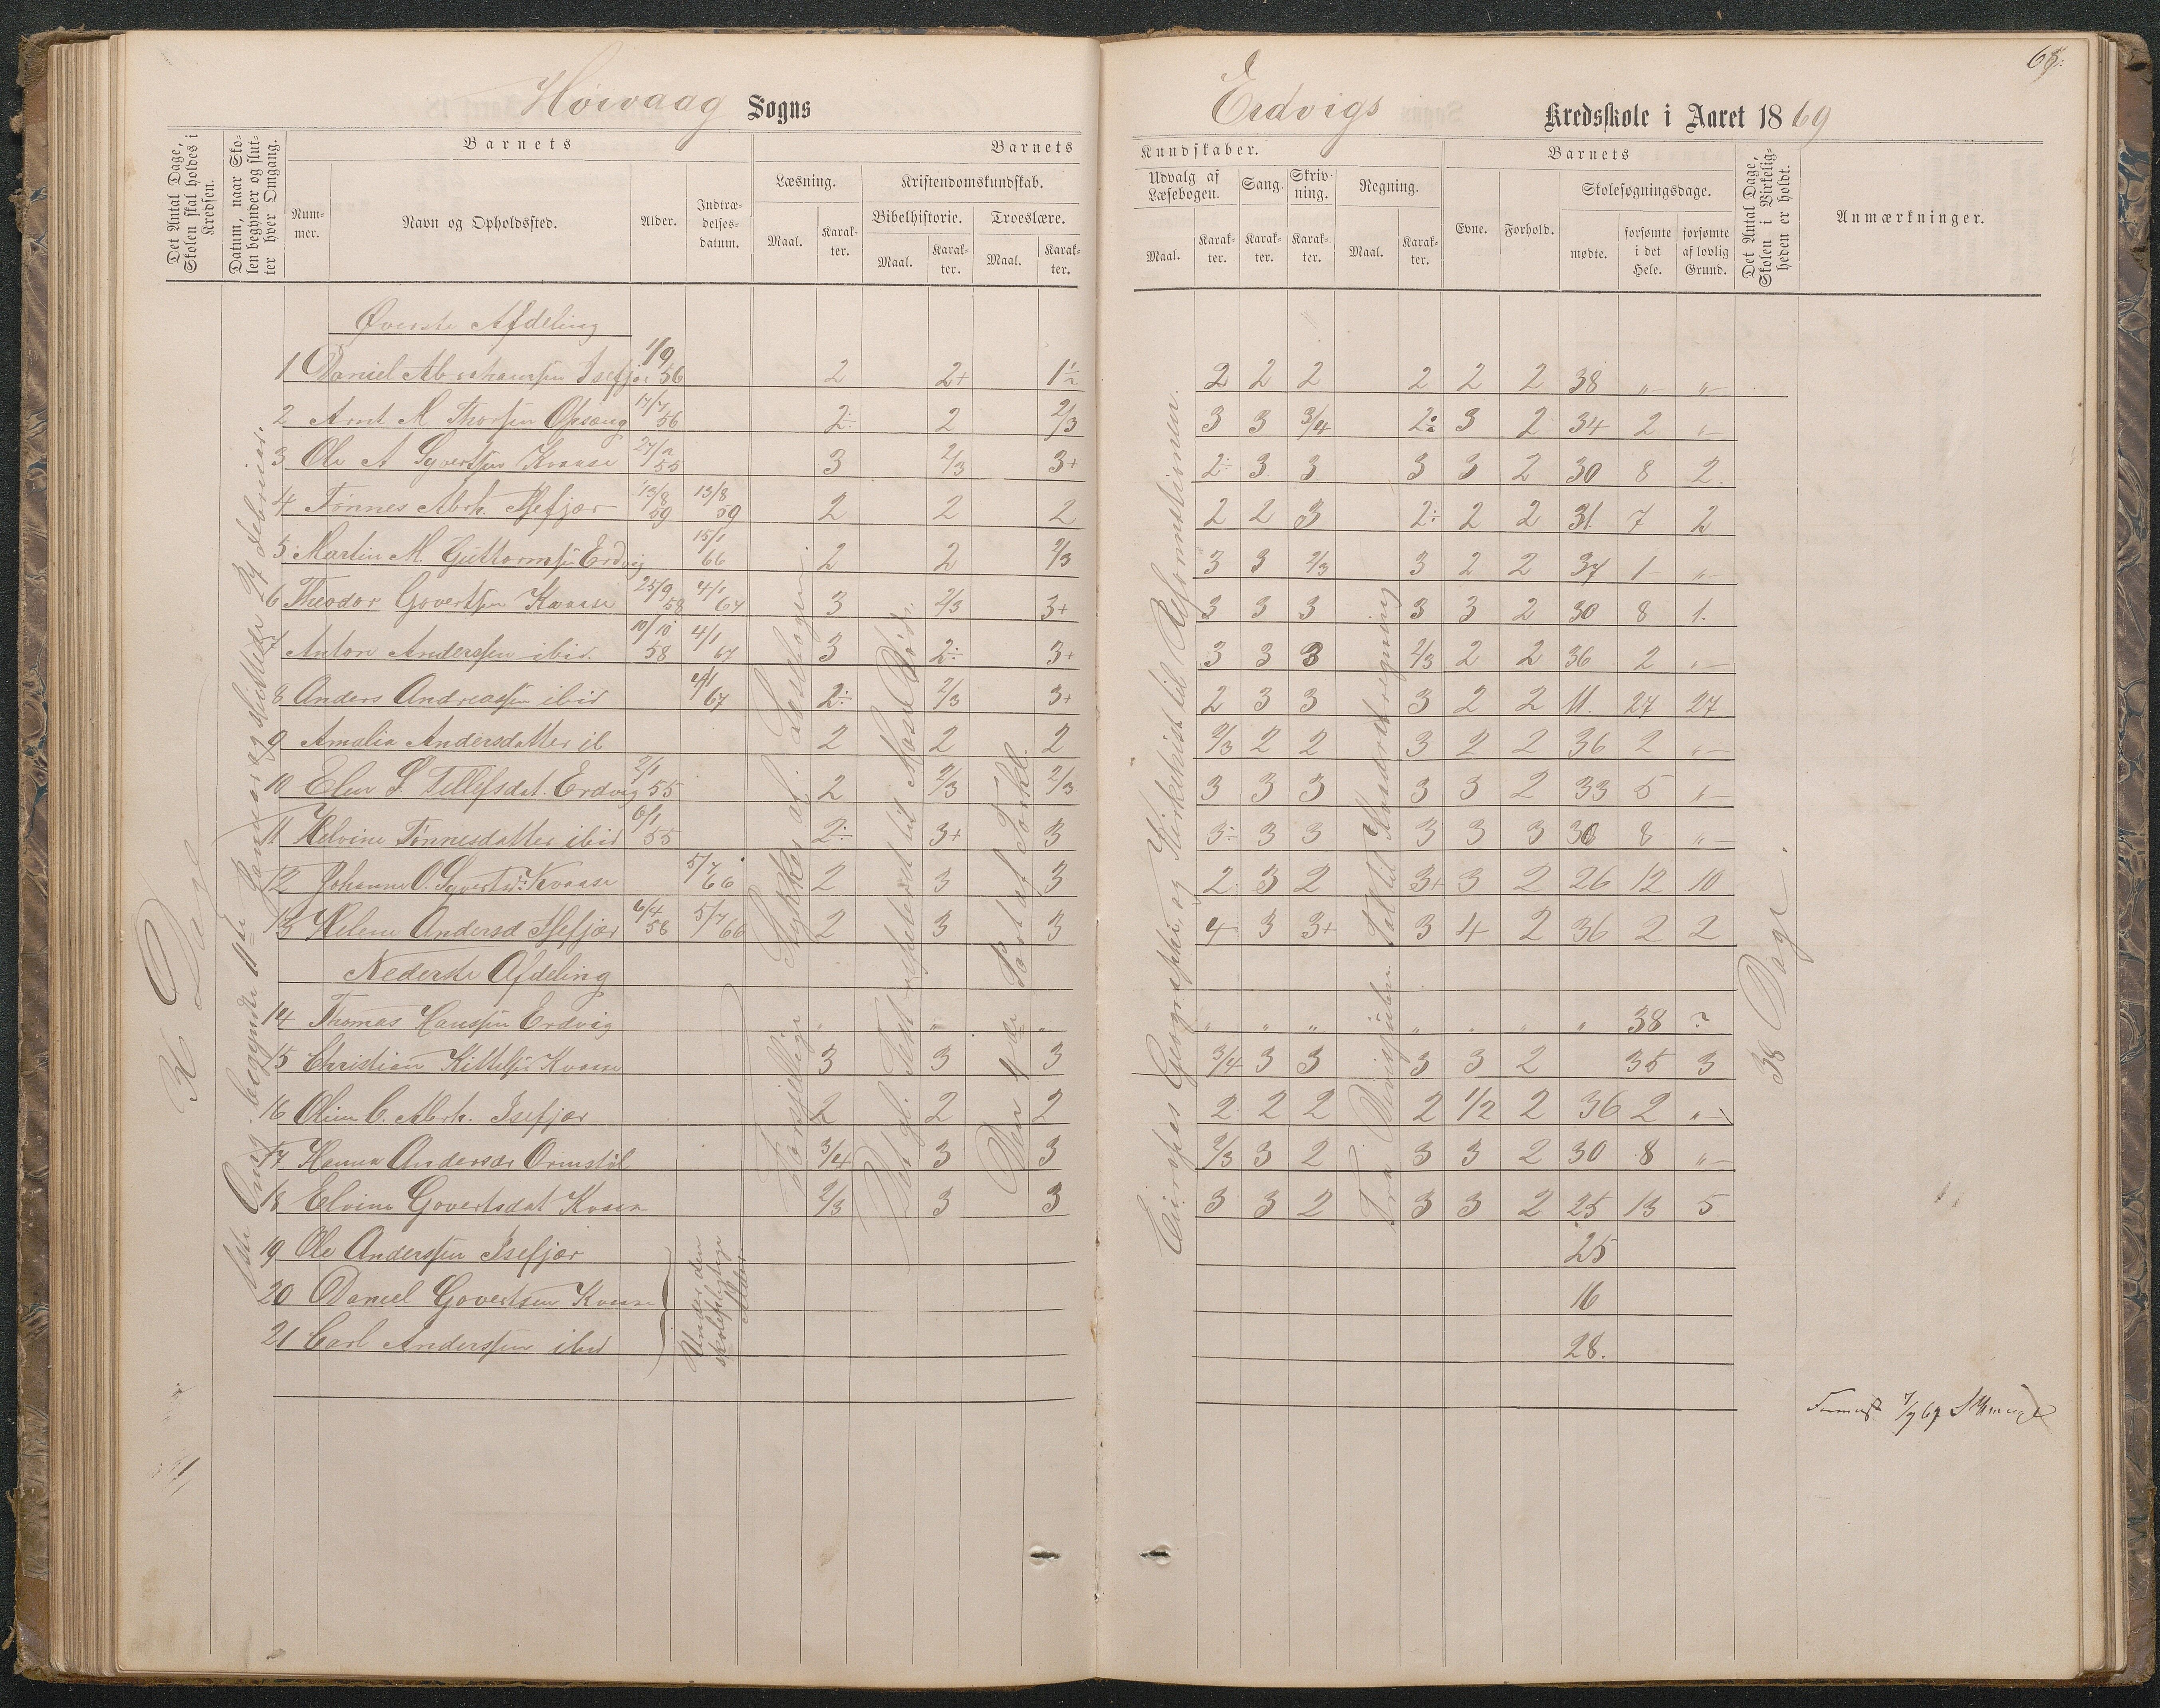 Høivaag Sogns
Det Antal Dage, Skolen skal holdes i Kredsen.
Datum, naar Skolen begynder og slutter hver Omgang.
Barnets
Nummer.
Navn og Opholdssted.
Alder.
Indtrædelsesdatum.
Barnets
Læsning.
Maal.
Karakter.
Kristendomskundskab.
Bibelhistorie.
Maal.
Karakter.
Troeslære.
Maal.
Karakter.
Øverste Afdeling
1 Daniel Abrahamsen Isefjær 1/9 56 2 2+ 1½
2 Arnt M Thorsen Opsang 17/7 56 2÷ 2 2/3
3 Ole A Syvertsen Kvaase 27/2 55 3 2/3 3+
4 Tønnes Abrh. Isefjær 13/8 59 13/8 59 2 2 2
5 Martin M. Guttormsen Erdvig 15/1 66 2 2 2/3
6 Theodor Govertsen Kvaase 25/9 58 4/1 67 3 2/3 3+
7 Anton Anderssen ibid. 10/10 58 4/1 67 3 2÷ 3+
8 Anders Andreassen ibid 4/1 67 2÷ 2/3 3+
9 Amalia Andersdatter ib 2 2 2
10 Elen S. Tellefsdat. Erdvig 2/1 55 2 2/3 2/3
11 Helvine Tønnesdatter ibid 6/1 55 2÷ 3+ 3
12 Johanne O. Syvertsd: Kvaase 5/7 66 2 3 3
13 Helene Andersd Isefjær 6/4 58 5/7 66 2 3 3
Nederste Afdeling
14 Thomas Hanssen Erdvig " " "
15 Christian Kittelsen Kvaase 3 3 3
16 Oline C. Abrh. Isefjær 2 2 2
17 Hanna Andersdr Ormstøl 3/4 3 3
18 Elvine Govertsdat Kvase 2/3 3 3
19 Ole Anderssen Isefjær
20 Daniel Govertsen Kvase
21 Carl Anderssen ibid
Under den skolepligtige Alder
Dage
1ste Omg. begyndte 11te Januar og sluttede 27 Februar.
Forskjellige Stykker af Læsebogen
Det gl. Test. repeteret til Mose Død.
Den 1ste Part af Forkl.
65:
Erdvigs Kredsskole i Aaret 1869
Kundskaber.
Udvalg af Læsebogen.
Maal.
Karakter.
Sang.
Karakter.
Skrivning.
Karakter.
Regning.
Maal.
Karakter.
Barnets
Evne.
Forhold.
Skolesøgningsdage.
mødte.
forsømte i det Hele.
forsømte af lovlig Grund.
Det Antal Dage, Skolen i Virkeligheden er holdt.
Anmærkninger.
2 2 2 2 2 2 38 " "
3 3 3/4 2÷ 3 2 34 2 "
2÷ 3 3 3 3 2 30 8 2
2 2 3 2÷ 2 2 31. 7 2
3 3 2/3 3 2 2 37 1 "
3 3 3 3 3 2 30 8 1.
3 3 3 2/3 2 2 36 2 "
2 3 3 3 2 2 11. 27 27
2/3 2 2 3 2 2 36 2 "
3 3 3 3 3 2 33 5 "
3÷ 3 3 3 3 3 30 8 "
2 3 2 3+ 3 2 26 12 10
4 3 3+ 3 4 2 36 2 2
" " " " " " " 38 ?
3/4 3 3 3 3 2 35 3
2 2 2 2 1/2 2 36 2 "
2/3 3 2 3 3 2 30 8 "
3 3 2 3 3 2 25 13 5
25
16
28.
Europas Geografhi og Kirkehist til Reformationen.
Fra Division Tal til Kvadratregning
38 Dage.